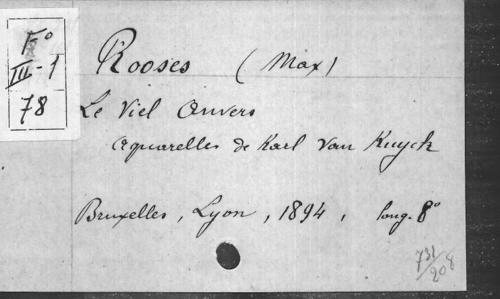 Fº
III-1
78
Rooses (Max)
Le Viel Anvers
aquarelles de Karl Van Kuyck
Bruxelles, Lyon, 1894, long. 8º
731/208